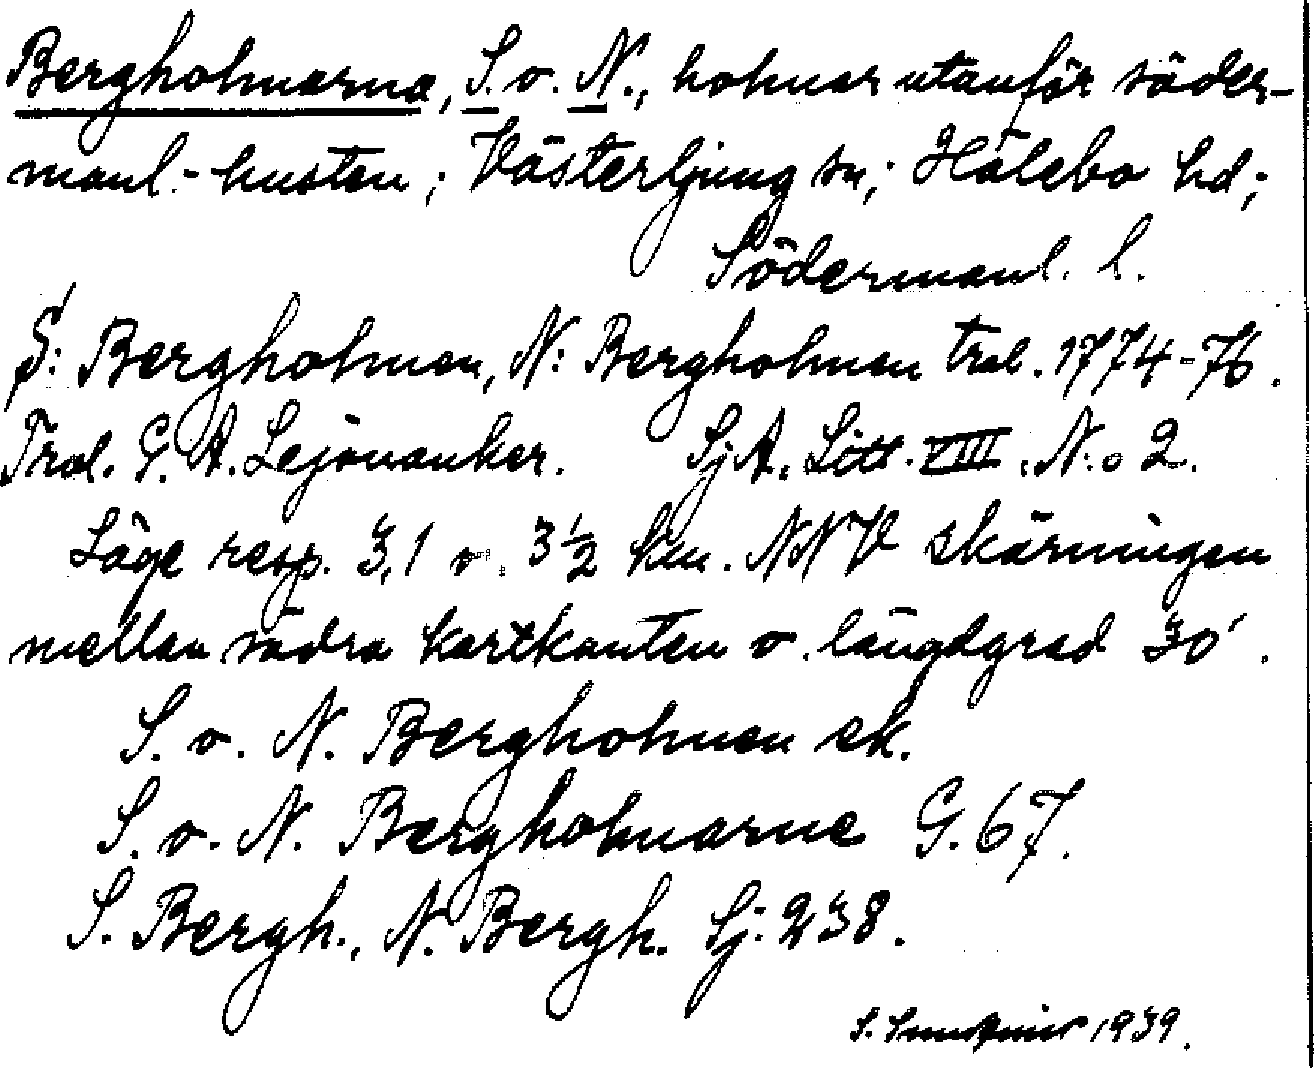 Bergholmarna, S. o. N., holmar utanför söder-
manl.-kusten; Västerljung sn; Hölebo hd;
Södermanl. l.
S: Bergholmen, N: Bergholmen trol. 1774-76.
Trol. G. A. Lejonanker. SjA. Litt. VIII. N:o 2.
Läge resp. 3,1 o. 3½ km. NNV skärningen
mellan södra kartkanten o. längdgrad 30'.
S. o. N. Bergholmen ek.
S. o. N. Bergholmarne G. 67.
S. Bergh., N. Bergh. Sj: 238.
S. 1939.